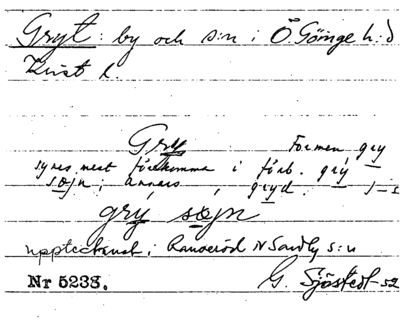 Gryt: by och s:n i Ö. Göinge h:d
Krist l.
Gry Formen gry
synes mest förekomma i förb. gry
søjn; annars gryd.
gry søjn
upptecknat i N Sandby s:n
Nr 5238. G. Sjöstedt -52